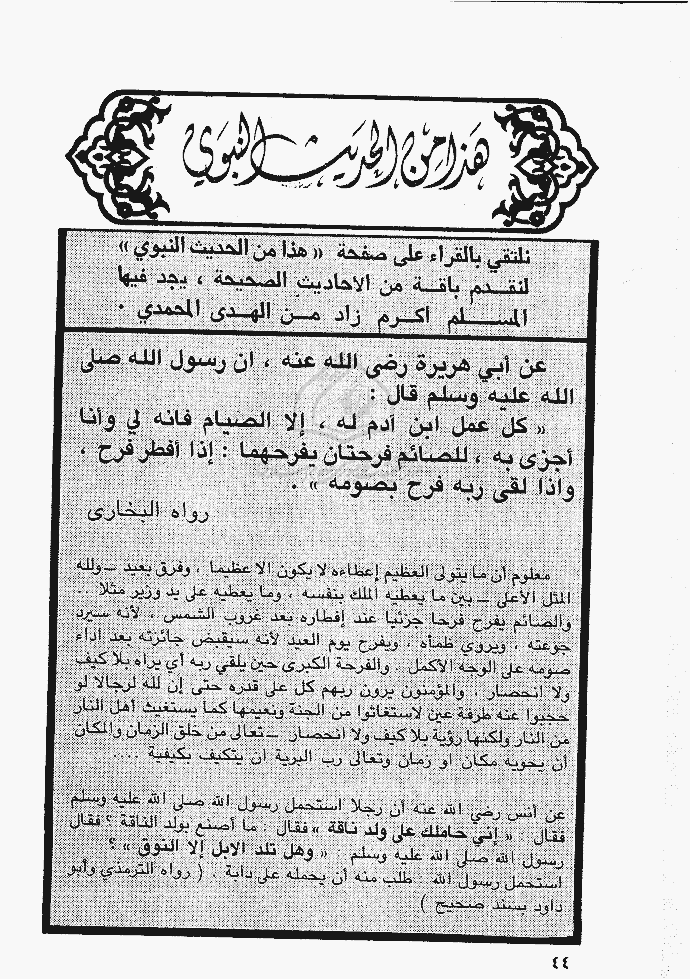 هذا من الحديث النبوي
نلتقي بالقراء على صفحة « هذا من الحديث النبوي »
لنقدم باقة من الاحاديث الصحيحة ، يجد فيها
المسلم اكرم زاد من الهدى المحمدي .
عن أبي هريرة رضى الله عنه ، ان رسول الله صلى
الله عليه وسلم قال :
« كل عمل ابن آدم له ، إلا الصيام فانه لي وأنا
أجزى به ، للصائم فرحتان يفرحهما : إذا أفطر فرح ،
واذا لقى ربه فرح بصومه » .
رواه البخارى
معلوم أن ما يتولى العظيم إعطاءه لا يكون الا عظيما ، وفرق بعيد – ولله
المثل الأعلى – بين ما يعطيه الملك بنفسه ، وما يعطيه على يد وزير مثلا ..
والصائم يفرح فرحا جزئيا عند إفطاره بعد غروب الشمس ، لأنه سيرد
جوعته ، ويروي ظمأه ، ويفرح يوم العيد لأنه سيقبض جائزته بعد اداء
صومه على الوجه الأكمل . والفرحة الكبرى حين يلقي ربه أي يراه بلا كيف
ولا انحصار ، والمؤمنون يرون ربهم كل على قدره حتى إن لله لرجالا لو
حجبوا عنه طرفة عين لاستغاثوا من الجنة ونعيمها كما يستغيث أهل النار
من النار ولكنها رؤية بلا كيف ولا انحصار – تعالى من خلق الزمان والمكان
أن يحويه مكان او زمان وتعالى رب البرية ان يتكيف بكيفية ....
عن أنس رضي الله عنه أن رجلا استحمل رسول الله صلى الله عليه وسلم
فقال « إني حاملك على ولد ناقة » فقال : ما أصنع بولد الناقة ؟ فقال
رسول الله صلى الله عليه وسلم : « وهل تلد الابل إلا النوق » ؟
استحمل رسول الله : طلب منه أن يحمله على دابة . ( رواه الترمذي وأبو
داود بسند صحيح )
٤٤